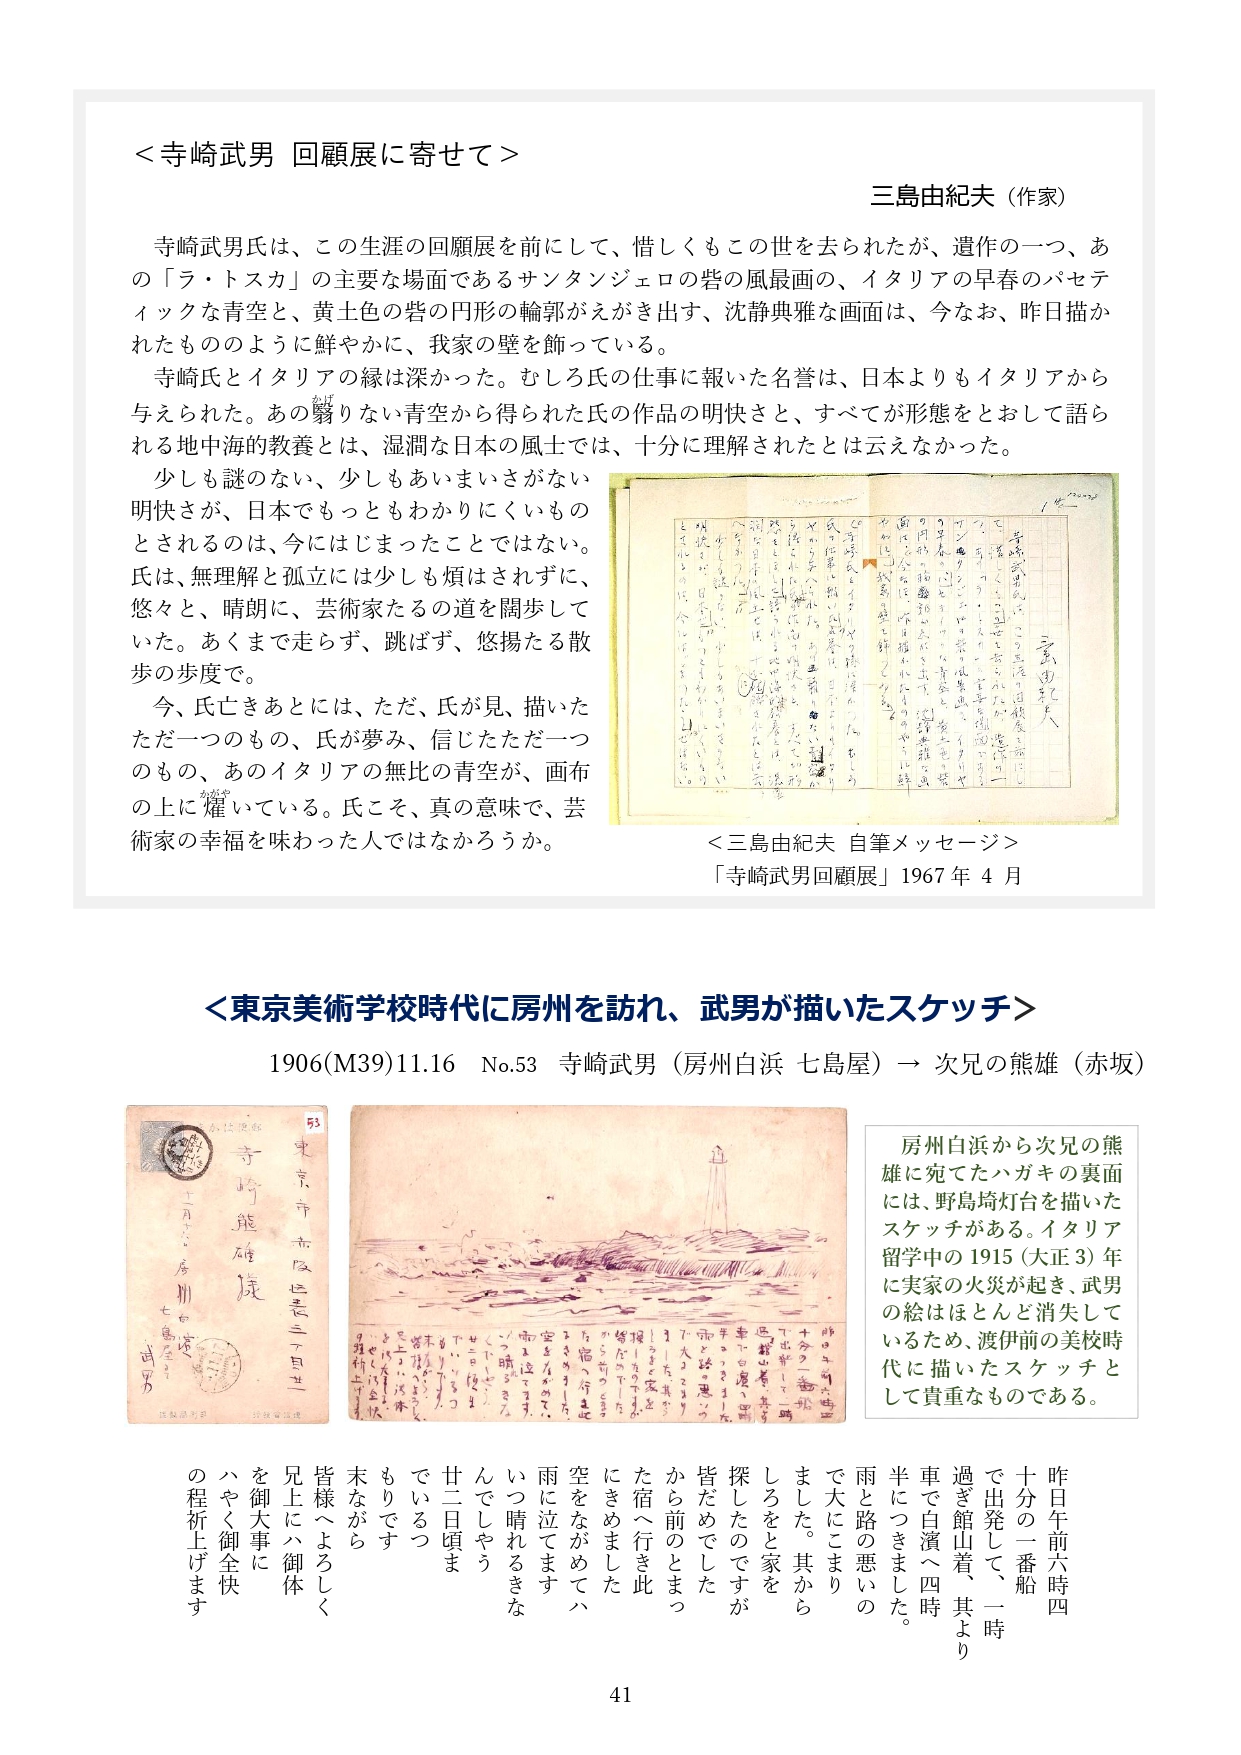 ＜寺崎武男 回顧展に寄せて＞
三島由紀夫（作家）
寺崎武男氏は、この生涯の回願展を前にして、惜しくもこの世を去られたが、遺作の一つ、あ
の「ラ・トスカ」の主要な場面であるサンタンジェロの砦の風最画の、イタリアの早春のパセテ
ィックな青空と、黄土色の砦の円形の輪郭がえがき出す、沈静典雅な画面は、今なお、昨日描か
れたもののように鮮やかに、我家の壁を飾っている。
寺崎氏とイタリアの縁は深かった。むしろ氏の仕事に報いた名誉は、日本よりもイタリアから
与えられた。あの翳りない青空から得られた氏の作品の明快さと、すべてが形態をとおして語ら
れる地中海的教養とは、湿潤な日本の風士では、十分に理解されたとは云えなかった。
少しも謎のない、少しもあいまいさがない
明快さが、日本でもっともわかりにくいもの
とされるのは、今にはじまったことではない。
氏は、無理解と孤立には少しも煩はされずに、
悠々と、晴朗に、芸術家たるの道を闊歩して
いた。あくまで走らず、跳ばず、悠揚たる散
歩の歩度で。
今、氏亡きあとには、ただ、氏が見、描いた
ただ一つのもの、氏が夢み、信じたただ一つ
のもの、あのイタリアの無比の青空が、画布
の上に燿いている。氏こそ、真の意味で、芸
術家の幸福を味わった人ではなかろうか。
三島由紀夫
＜三島由紀夫 自筆メッセージ＞
「寺崎武男回顧展」1967 年 4 月
＜東京美術学校時代に房州を訪れ、武男が描いたスケッチ＞
1906(M39)11.16 No.53 寺崎武男（房州白浜 七島屋）→ 次兄の熊雄（赤坂）
53
東京市赤阪区表三丁目廿一
寺崎熊雄様
十一月十六日
房州白濱
七島屋より
武男
房州白浜から次兄の熊
雄に宛てたハガキの裏面
には、野島埼灯台を描いた
スケッチがある。イタリア
留学中の 1915（大正 3）年
に実家の火災が起き、武男
の絵はほとんど消失して
いるため、渡伊前の美校時
代に描いたスケッチと
して貴重なものである。
昨日午前六時四
十分の一番船
で出発して、一時
過ぎ館山着、其より
車で白濱へ四時
半につきました。
雨と路の悪いの
で大にこまり
ました。其から
しろをと家を
探したのですが
皆だめでした
から前のとまっ
た宿へ行き此
にきめました
空をながめてハ
雨に泣てます
いつ晴れるきな
んでしやう
廿二日頃ま
でいるつ
もりです
末ながら
皆様へよろしく
兄上にハ御体
を御大事に
ハやく御全快
の程祈上げます
41